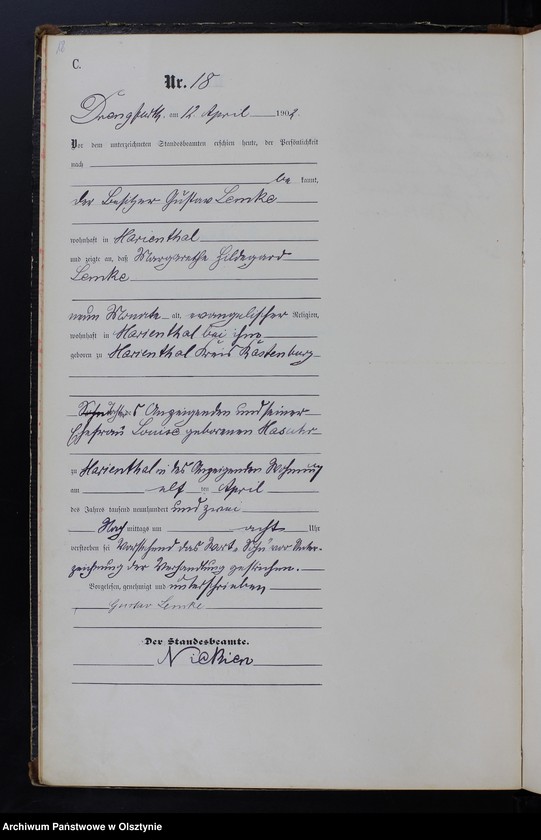 C.
Nr. 18
Drengfurth, am 12 April 1902.
Vor dem unterzeichneten Standesbeamten erschien heute, der Persönlichkeit
nach
be kannt,
der Besitzer Gustav Lemke
wohnhaft in Marienthal
und zeigte an, daß Margarethe Hildegard
Lemke
neun Monate alt, evangelischer Religion,
wohnhaft in Marienthal bei ihm
geboren zu Marienthal Kreis Rastenburg
Sohn Tochter des Anzeigenden und seiner
Ehefrau Louise geborenen Masuhr
zu Marienthal in des Anzeigenden Wohnung
am elf ten April
des Jahres tausend neunhundert und zwei
Nach mittags um acht Uhr
verstorben sei Vorstehend das Wort „Sohn" vor Unter-
zeichnung der Verhandlung gestrichen.
Vorgelesen, genehmigt und unterschrieben
Gustav Lemke
Der Standesbeamte.
Archiwum Państwowe w Olsztynie